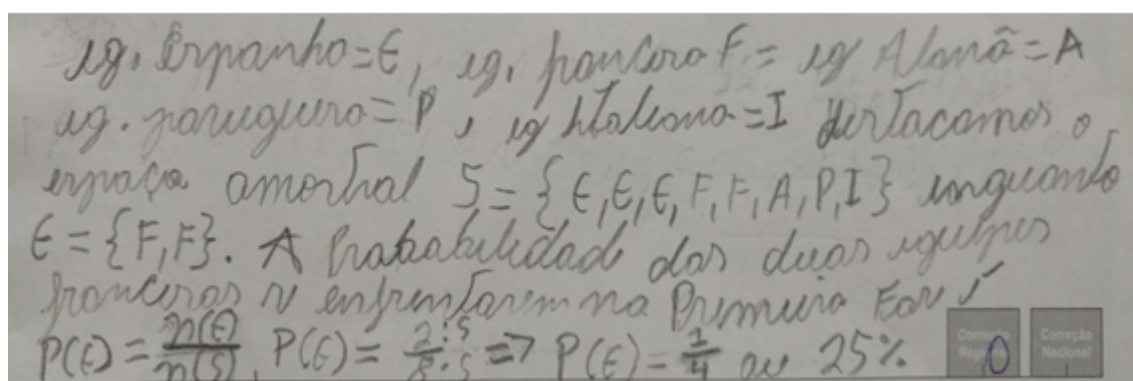 eg. Espanha=E, eg. francesa F= eg Alemã=A
eg. portuguesa=P, eg Italiana=I destacamos o
espaço amostral S={E,E,E,F,F,A,P,I} enquanto
E={F,F}. A Probabilidad das duas equipes
francesas se enfrentarem na Primeira Fase
P(E)=n(E)/n(S), P(E)= 2/8 => P(E)=1/4 ou 25%
Correção Regional 0
Correção Nacional